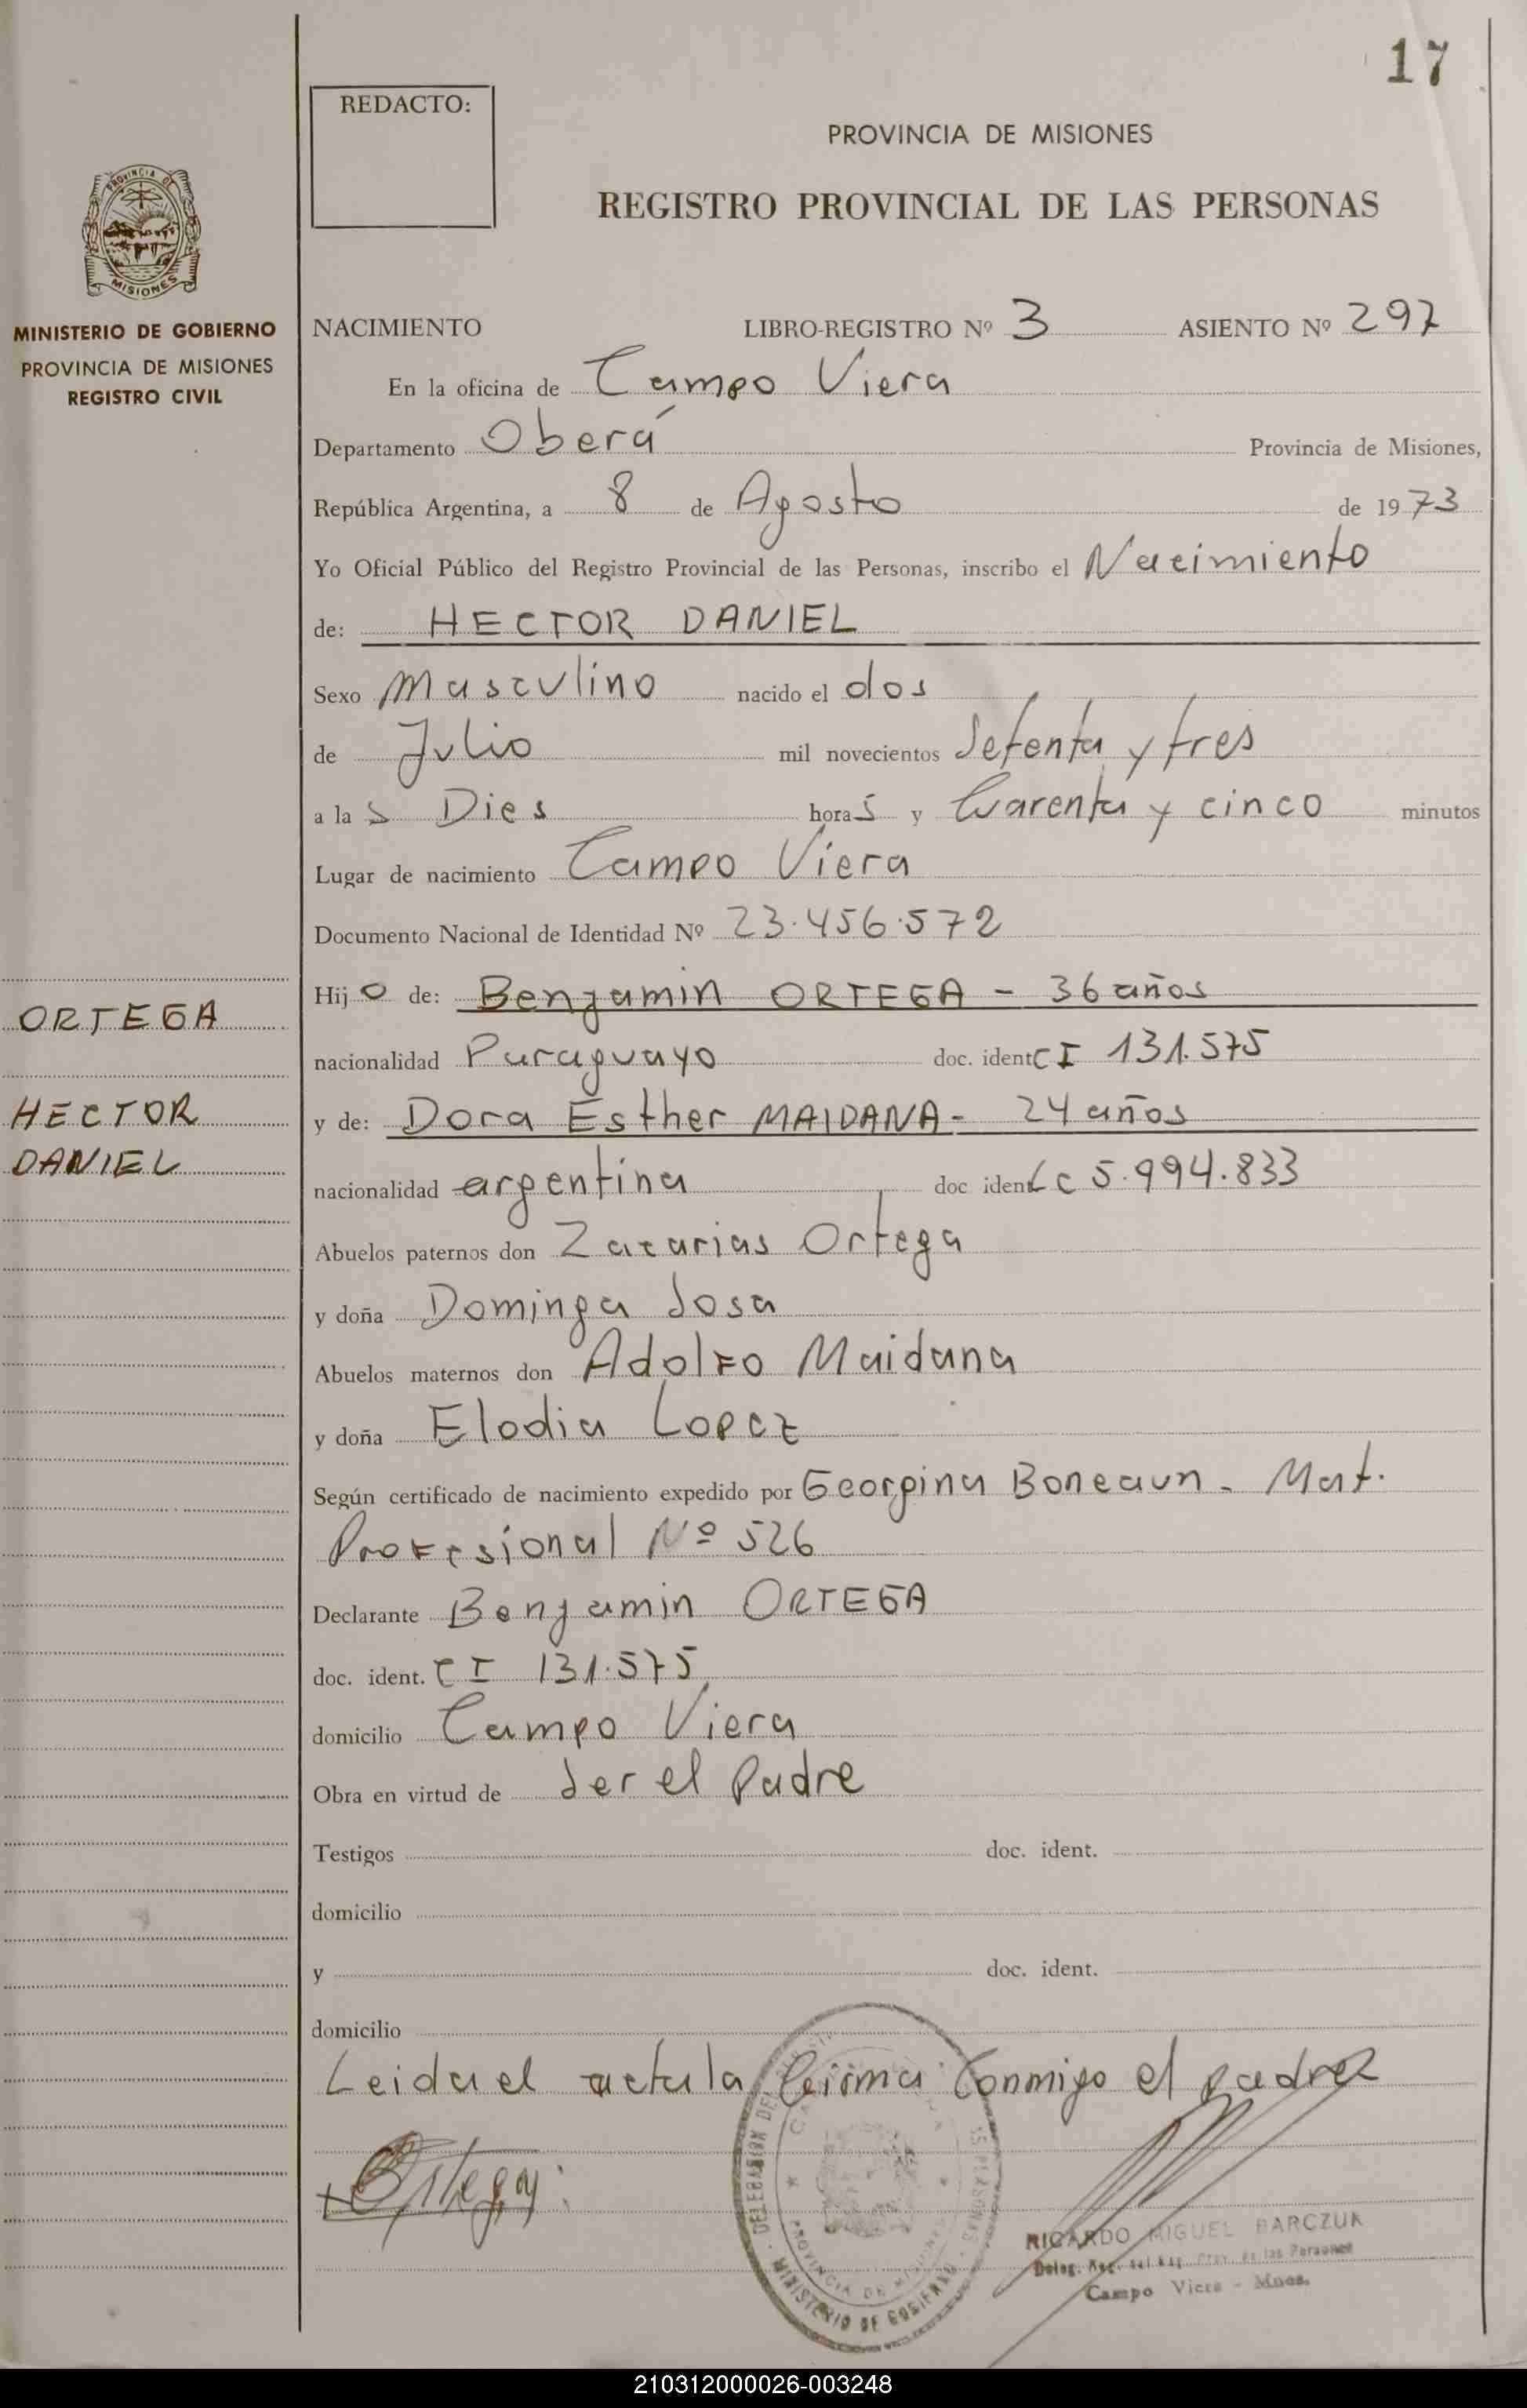 17
REDACTO:
PROVINCIA DE MISIONES
REGISTRO PROVINCIAL DE LAS PERSONAS
PROVINCIA DE
MISIONES
MINISTERIO DE GOBIERNO
PROVINCIA DE MISIONES
REGISTRO CIVIL
NACIMIENTO LIBRO-REGISTRO Nº 3 ASIENTO Nº 297
En la oficina de Campo Viera
Departamento Oberá Provincia de Misiones,
República Argentina, a 8 de Agosto de 1973
Yo Oficial Público del Registro Provincial de las Personas, inscribo el Nacimiento
de: HECTOR DANIEL
Sexo Masculino nacido el dos
de Julio mil novecientos Setenta y tres
a la s Dies hora s y Cuarenta y cinco minutos
Lugar de nacimiento Campo Viera
Documento Nacional de Identidad Nº 23.456.572
Hij o de: Benjamin ORTEGA - 36 años
nacionalidad Paraguayo doc. ident CI 131.575
y de: Dora Esther MAIDANA - 24 años
nacionalidad argentina doc ident LC 5.994.833
Abuelos paternos don Zacarias Ortega
y doña Dominga Sosa
Abuelos maternos don Adolfo Maidana
y doña Elodia Lopez
Según certificado de nacimiento expedido por Georgina Boneaun - Mat.
Profesional Nº 526
Declarante Benjamin ORTEGA
doc. ident. CI 131.575
domicilio Campo Viera
Obra en virtud de Ser el Padre
Testigos doc. ident.
domicilio
y doc. ident.
domicilio
Leida el acta la firma Conmigo el padre
Ortega
ORTEGA
HECTOR
DANIEL
DELEGACION DEL
DE LAS PERSONAS
PROVINCIA DE MISIONES
MINISTERIO DE GOBIERNO
RICARDO MIGUEL BARCZUK
Deleg. Reg. del Reg. Prov. de las Personas
Campo Viera - Mnes.
210312000026-003248